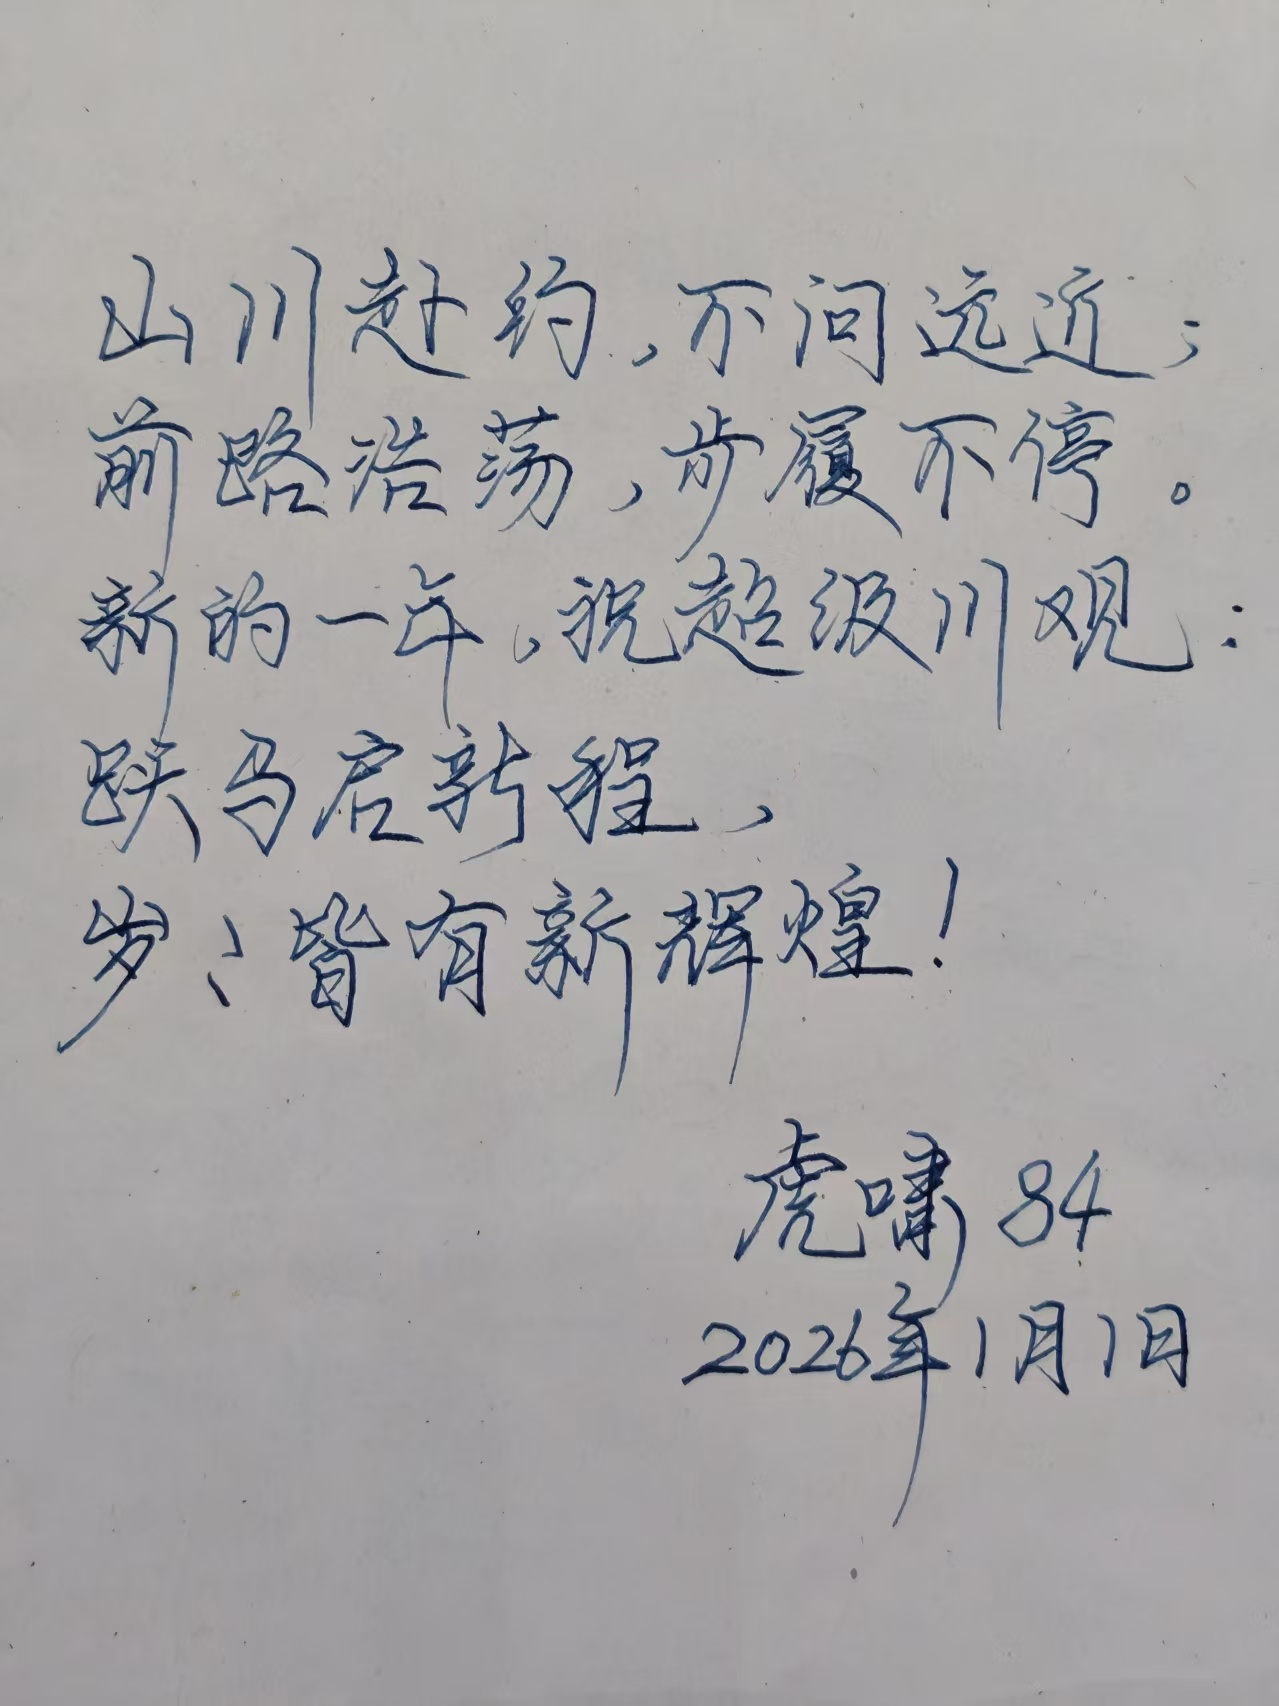 山川赴约，不问远近；
前路浩荡，步履不停。
新的一年，祝超级川观：
跃马启新程，
岁々皆有新辉煌！
虎啸84
2026年1月1日